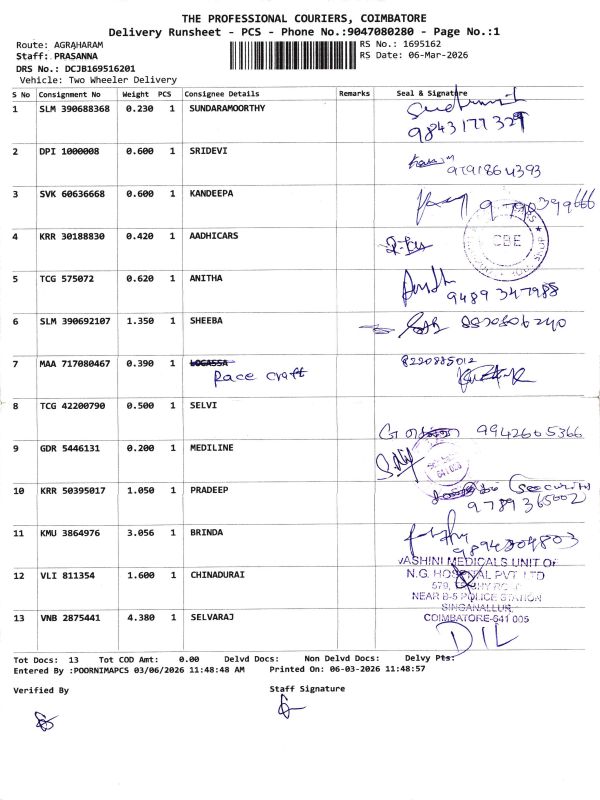 THE PROFESSIONAL COURIERS, COIMBATORE
Delivery Runsheet - PCS - Phone No.:9047080280 - Page No.:1
Route: AGRAHARAM
RS No.: 1695162
Staff: PRASANNA
RS Date: 06-Mar-2026
DRS No.: DCJB169516201
Vehicle: Two Wheeler Delivery
S No Consignment No Weight PCS Consignee Details Remarks Seal & Signature
1 SLM 390688368 0.230 1 SUNDARAMOORTHY
9843177327
2 DPI 1000008 0.600 1 SRIDEVI
3 SVK 60636668 0.600 1 KANDEEPA
4 KRR 30188830 0.420 1 AADHICARS
CBE
5 TCG 575072 0.620 1 ANITHA
9489347988
6 SLM 390692107 1.350 1 SHEEBA
7 MAA 717080467 0.390 1 LOGASSA
8220885012
Race craft
8 TCG 42200790 0.500 1 SELVI
9942605366
9 GDR 5446131 0.200 1 MEDILINE
10 KRR 50395017 1.050 1 PRADEEP
(Security)
9789365002
11 KMU 3864976 3.056 1 BRINDA
9894204803
VASHINI MEDICALS UNIT OF
12 VLI 811354 1.600 1 CHINADURAI
N.G. HOSPITAL PVT LTD
NEAR B-5 POLICE STATION
SINGANALLUR,
13 VNB 2875441 4.380 1 SELVARAJ
COIMBATORE-641 005
Tot Docs: 13 Tot COD Amt: 0.00 Delvd Docs: Non Delvd Docs: Delvy Pts:
Entered By :POORNIMAPCS 03/06/2026 11:48:48 AM Printed On: 06-03-2026 11:48:57
Verified By
Staff Signature